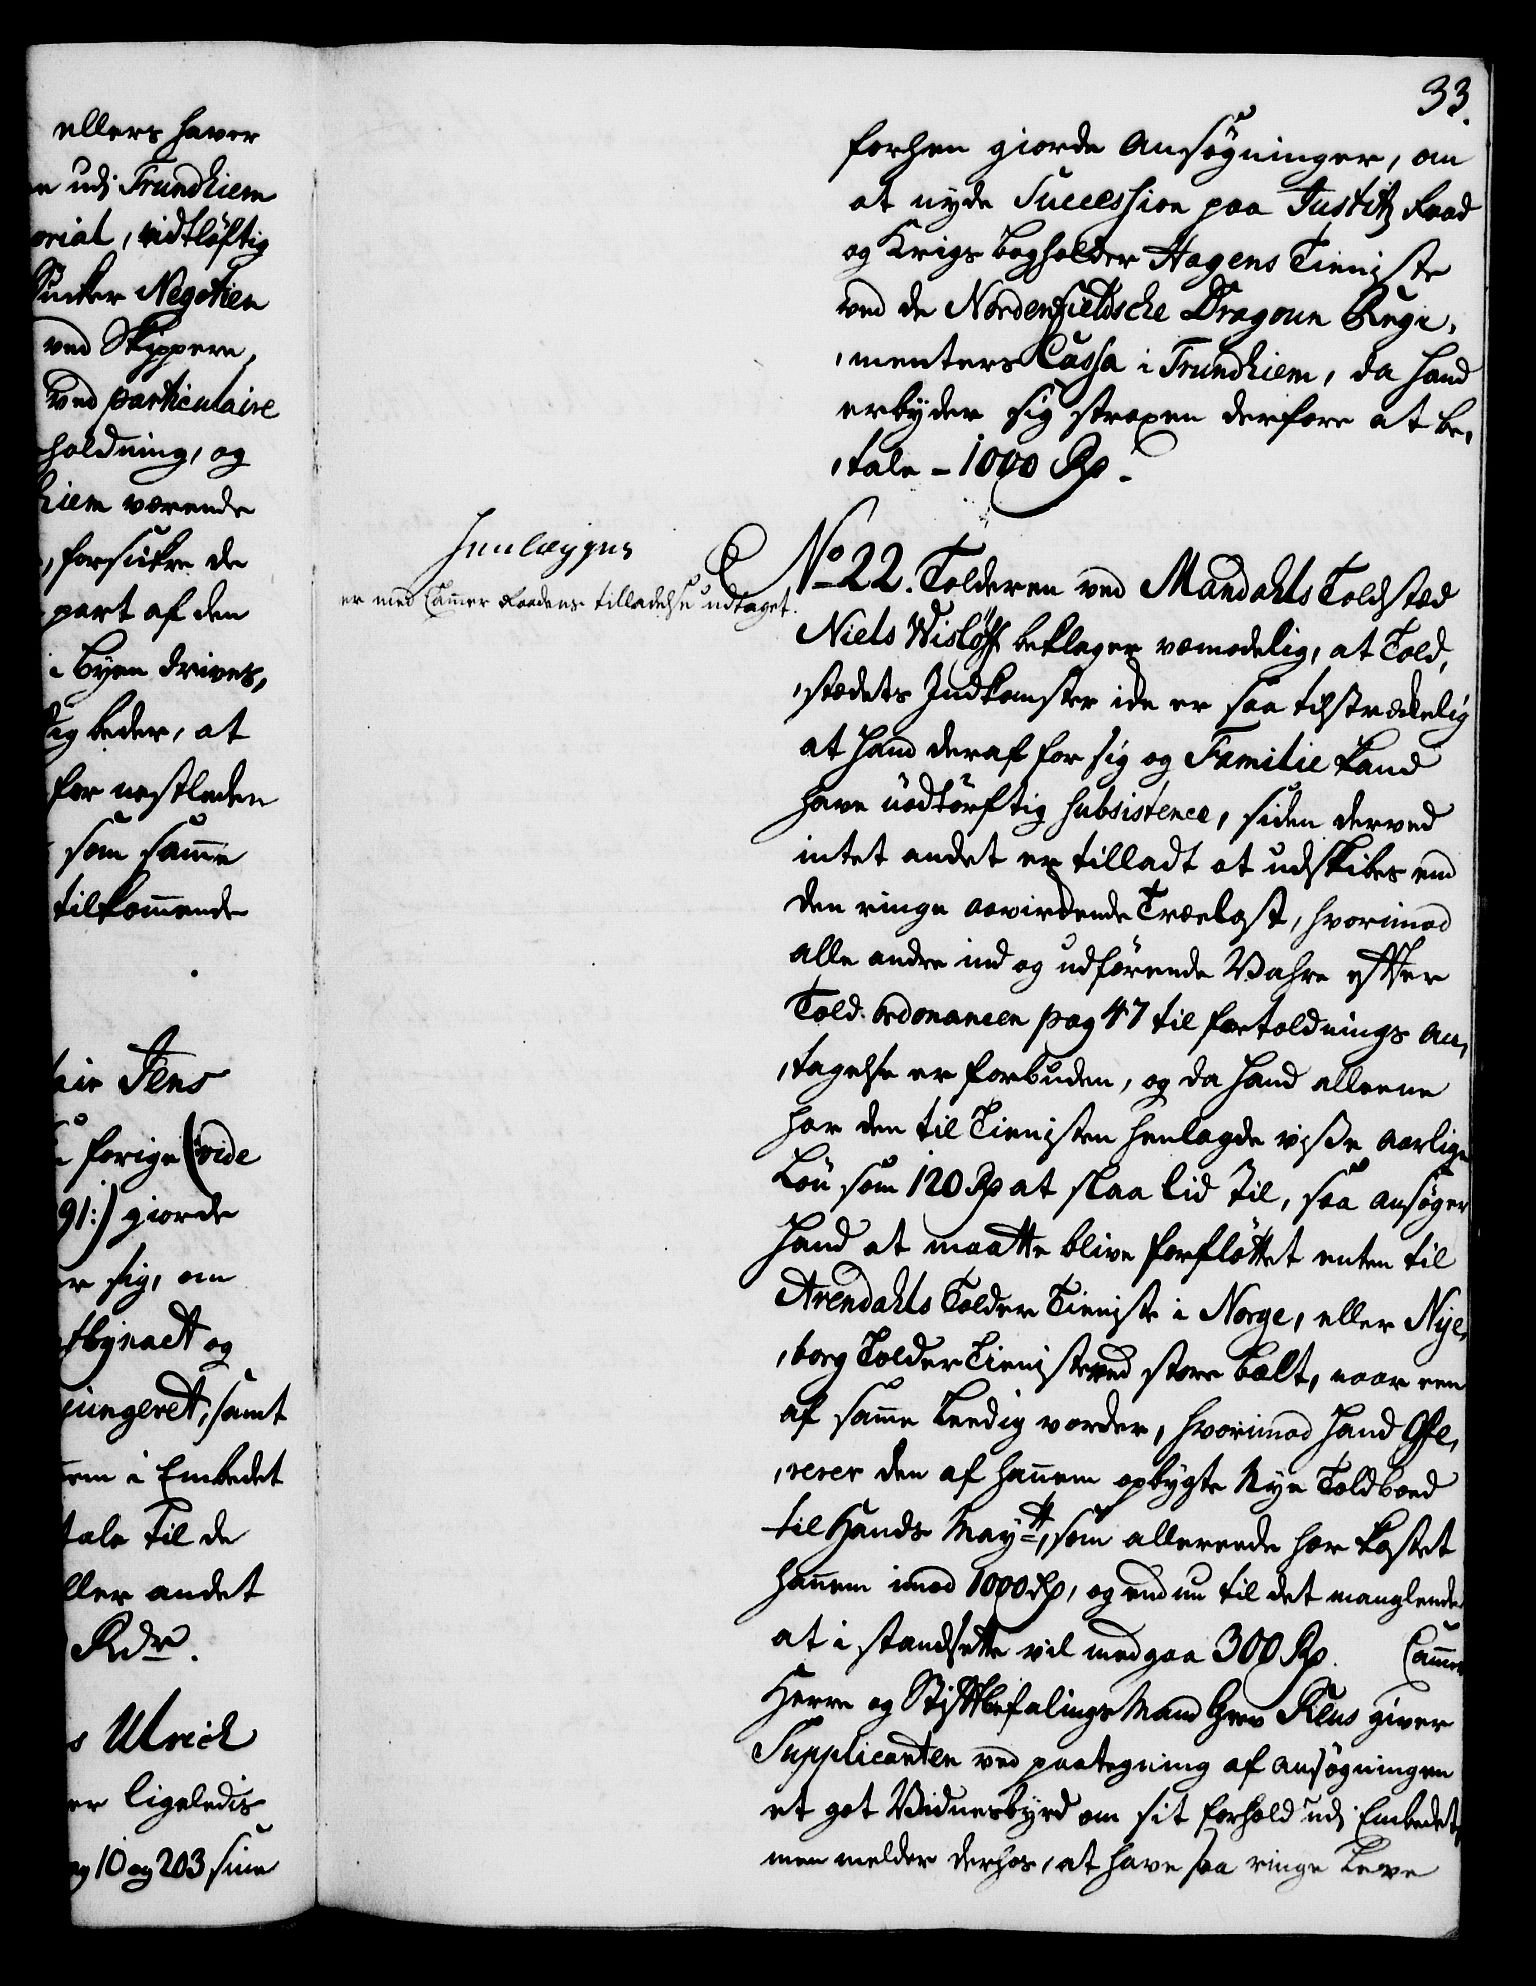 33.
ellers haver
udj Trundhiem
vidtløftig
Negotien
ved Skippere,
ved particulaire
holdning, og
hiem værende
forsickre de
part af den
i Byen drives,
beder, at
for nestleden
som samme
tilkommende
Jens
forige (vide
91:) giorde
sig, om
og
samt
i Embedet
tale til de
andet
Rdr.
Ulrich
ligeledis
10 og 203 sine
forhen giorde Ansøgninger, om
at nyde Succession paa Justitz Raad
og Krigs Bogholder Hagens Tieniste
ved de Nordenfieldsche Dragoun Regi-
-menters Cassa i Trundhiem, da hand
erbyder sig straxen derfore at be-
-tale - 1000 Rd.
Henlægges
er med Cammer Raadens tilladelse udtaget.
No 22. Tolderen ved Mandahls Toldsted
Niels Wisløff beklager vemodelig, at Told-
-stedets Indkomster icke er saa tilstreckelig
at hand deraf for sig og Familie kand
have nødtørftig subsistence, siden derved
intet andet er tilladt at udskibes end
den ringe Trælast, hvorimod
alle andre ind og udførende Vahre efter
Told-Ordonancen pag 47 til fortoldnings An-
-tagelse er forbuden, og da hand alleene
har den til Tienisten henlagde visse Aarlige
Løn som 120 Rd at slaa lid til, saa ansøger
hand at maatte blive forfløttet enten til
Arendahls Tolder Tieniste i Norge, eller Nye-
-borg Tolder Tieniste ved store Bælt, naar een
af samme Leedig vorder, hvorimod hand Offe-
-rerer den af hannem opbygte Nye Toldboed
til Hands Maytt, som allereede har kostet
hannem imod 1000 Rd, og end nu til det manglende
at i standsette vil medgaa 300 Rd. Cammer
Herre og Stiftbefalings Mand Grev Reus giver
Supplicanten ved paategning af ansøgningen
et got Vidnesbyrd om sit forhold udj Embedet,
men melder derhos, at have saa ringe Leve